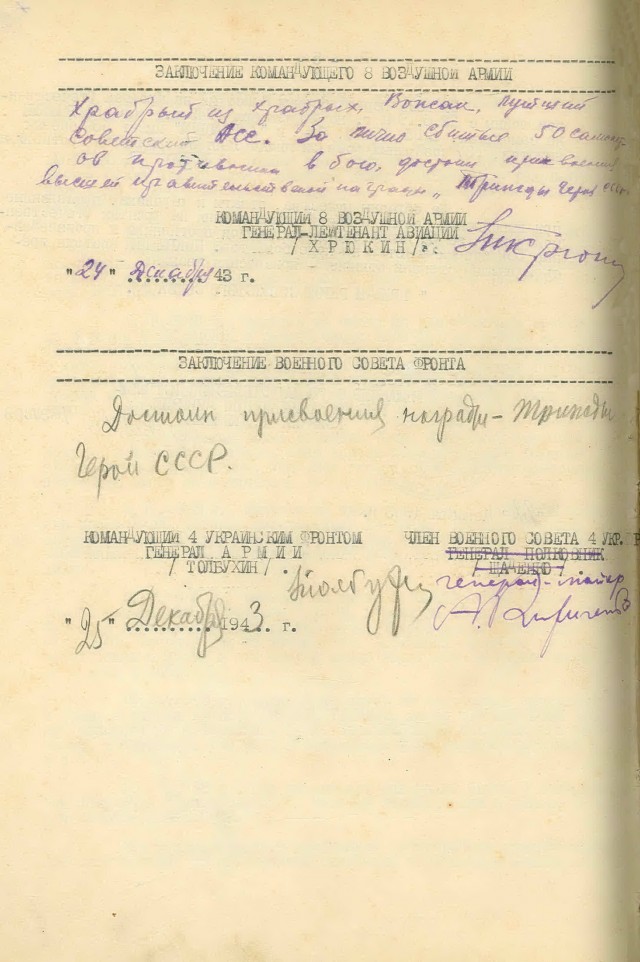 ЗАКЛЮЧЕНИЕ КОМАНДУЮЩЕГО 8 ВОЗДУШНОЙ АРМИИ
Храбрый из храбрых, Вожак, лучший
советский Асс. За лично сбитые 50 самолет-
ов противника в бою, достоин присвоения
высшей правительственной награды „Трижды Герой СССР
КОМАНДУЮЩИЙ 8 ВОЗДУШНОЙ АРМИИ
ГЕНЕРАЛ-ЛЕЙТЕНАНТ АВИАЦИИ
/ Х Р Ю К И Н /
"24" Декабря 43 г.
ЗАКЛЮЧЕНИЕ ВОЕННОГО СОВЕТА ФРОНТА
Достоин присвоения награды - Трижды
Герой СССР.
КОМАНДУЮЩИЙ 4 УКРАИНСКИМ ФРОНТОМ
ГЕНЕРАЛ А Р М И И
/ ТОЛБУХИН /
Толбухин
"25" Декабря 1943 г.
ЧЛЕН ВОЕННОГО СОВЕТА 4 УКР.
ГЕНЕРАЛ ПОЛКОВНИК
/ ЩАДЕНКО /
генерал-майор
А. Кириченко